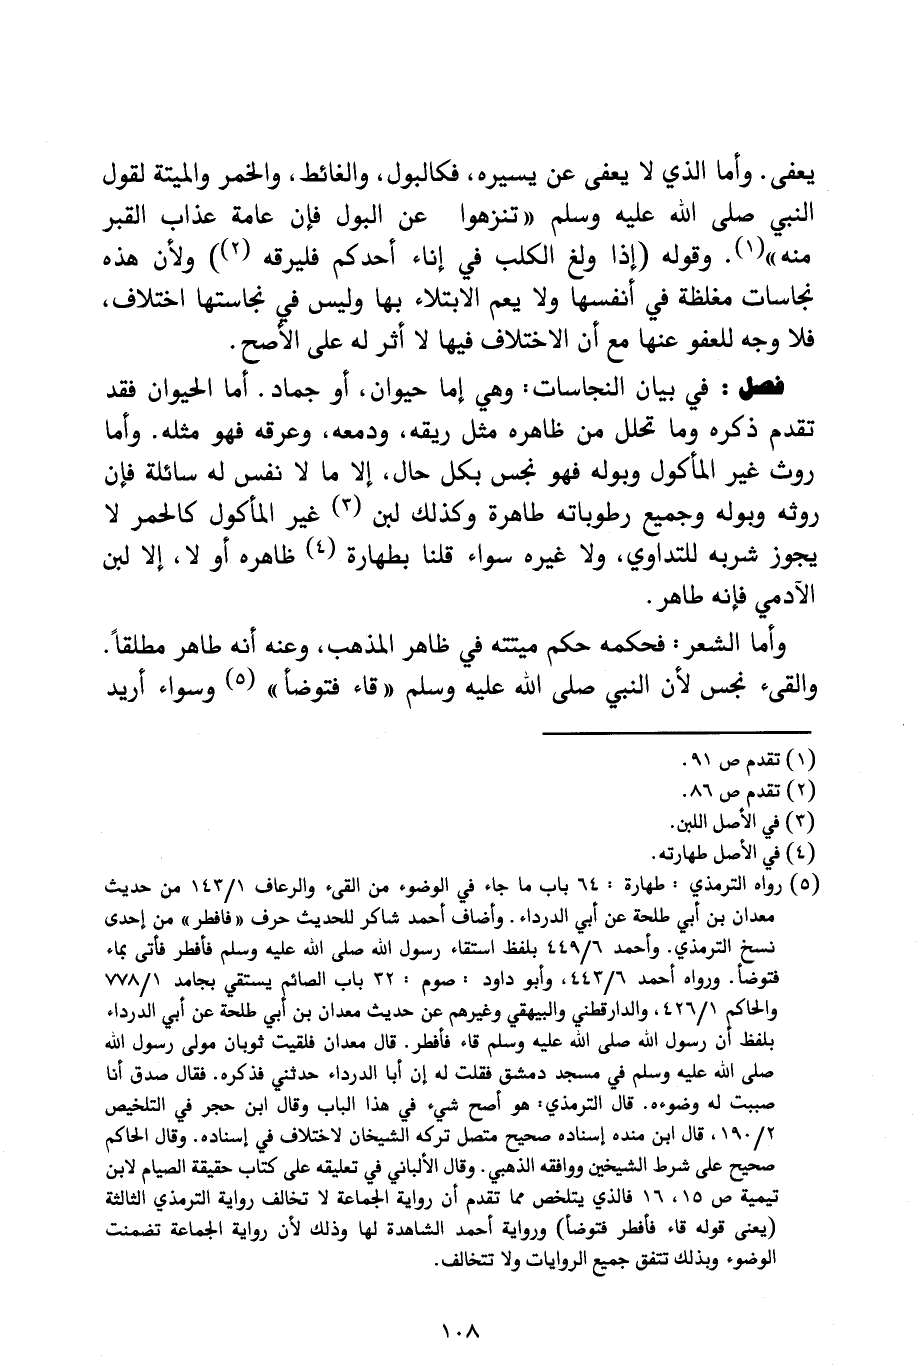 يعفى. وأما الذي لا يعفى عن يسيره، فكالبول، والغائط، والخمر والميتة لقول
النبي صلى الله عليه وسلم «تنزهوا عن البول فإن عامة عذاب القبر
منه»(١). وقوله (إذا ولغ الكلب في إناء أحدكم فليرقه (٢)) ولأن هذه
نجاسات مغلظة في أنفسها ولا يعم الابتلاء بها وليس في نجاستها اختلاف،
فلا وجه للعفو عنها مع أن الاختلاف فيها لا أثر له على الأصح.
فصل: في بيان النجاسات: وهي إما حيوان، أو جماد. أما الحيوان فقد
تقدم ذكره وما تحلل من ظاهره مثل ريقه، ودمعه، وعرقه فهو مثله. وأما
روث غير المأكول وبوله فهو نجس بكل حال، إلا ما لا نفس له سائلة فإن
روثه وبوله وجميع رطوباته طاهرة وكذلك لبن (٣) غير المأكول كالحمر لا
يجوز شربه للتداوي، ولا غيره سواء قلنا بطهارة (٤) ظاهره أو لا، إلا لبن
الآدمي فإنه طاهر.
وأما الشعر: فحكمه حكم ميتته في ظاهر المذهب، وعنه أنه طاهر مطلقاً.
والقيء نجس لأن النبي صلى الله عليه وسلم «قاء فتوضأ» (٥) وسواء أريد
(١) تقدم ص ٩١.
(٢) تقدم ص ٨٦.
(٣) في الأصل اللبن.
(٤) في الأصل طهارته.
(٥) رواه الترمذي : طهارة : ٦٤ باب ما جاء في الوضوء من القيء والرعاف ١٤٣/١ من حديث
معدان بن أبي طلحة عن أبي الدرداء. وأضاف أحمد شاكر للحديث حرف «فافطر» من إحدى
نسخ الترمذي. وأحمد ٤٤٩/٦ بلفظ استقاء رسول الله صلى الله عليه وسلم فأفطر فأتى بماء
فتوضأ. ورواه أحمد ٤٤٣/٦، وأبو داود : صوم : ٣٢ باب الصائم يستقي بجامد ٧٧٨/١
والحاكم ٤٢٦/١، والدارقطني والبيهقي وغيرهم عن حديث معدان بن أبي طلحة عن أبي الدرداء
بلفظ أن رسول الله صلى الله عليه وسلم قاء فأفطر. قال معدان فلقيت ثوبان مولى رسول الله
صلى الله عليه وسلم في مسجد دمشق فقلت له إن أبا الدرداء حدثني فذكره. فقال صدق أنا
صببت له وضوءه. قال الترمذي: هو أصح شيء في هذا الباب وقال ابن حجر في التلخيص
١٩٠/٢، قال ابن منده إسناده صحيح متصل تركه الشيخان لاختلاف في إسناده. وقال الحاكم
صحيح على شرط الشيخين ووافقه الذهبي. وقال الألباني في تعليقه على كتاب حقيقة الصيام لابن
تيمية ص ١٥، ١٦ فالذي يتلخص مما تقدم أن رواية الجماعة لا تخالف رواية الترمذي الثالثة
(يعنى قوله قاء فأفطر فتوضأ) ورواية أحمد الشاهدة لها وذلك لأن رواية الجماعة تضمنت
الوضوء وبذلك تتفق جميع الروايات ولا تتخالف.
١٠٨